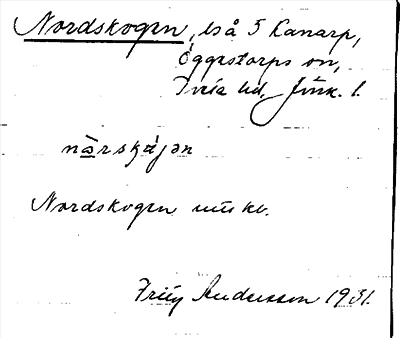 Nordskogen, lså 5 Kanarp,
Öggestorps sn,
Tveta hd, Jönk. l.
närskǻjən
Nordskogen
Fritz Andersson 1931.